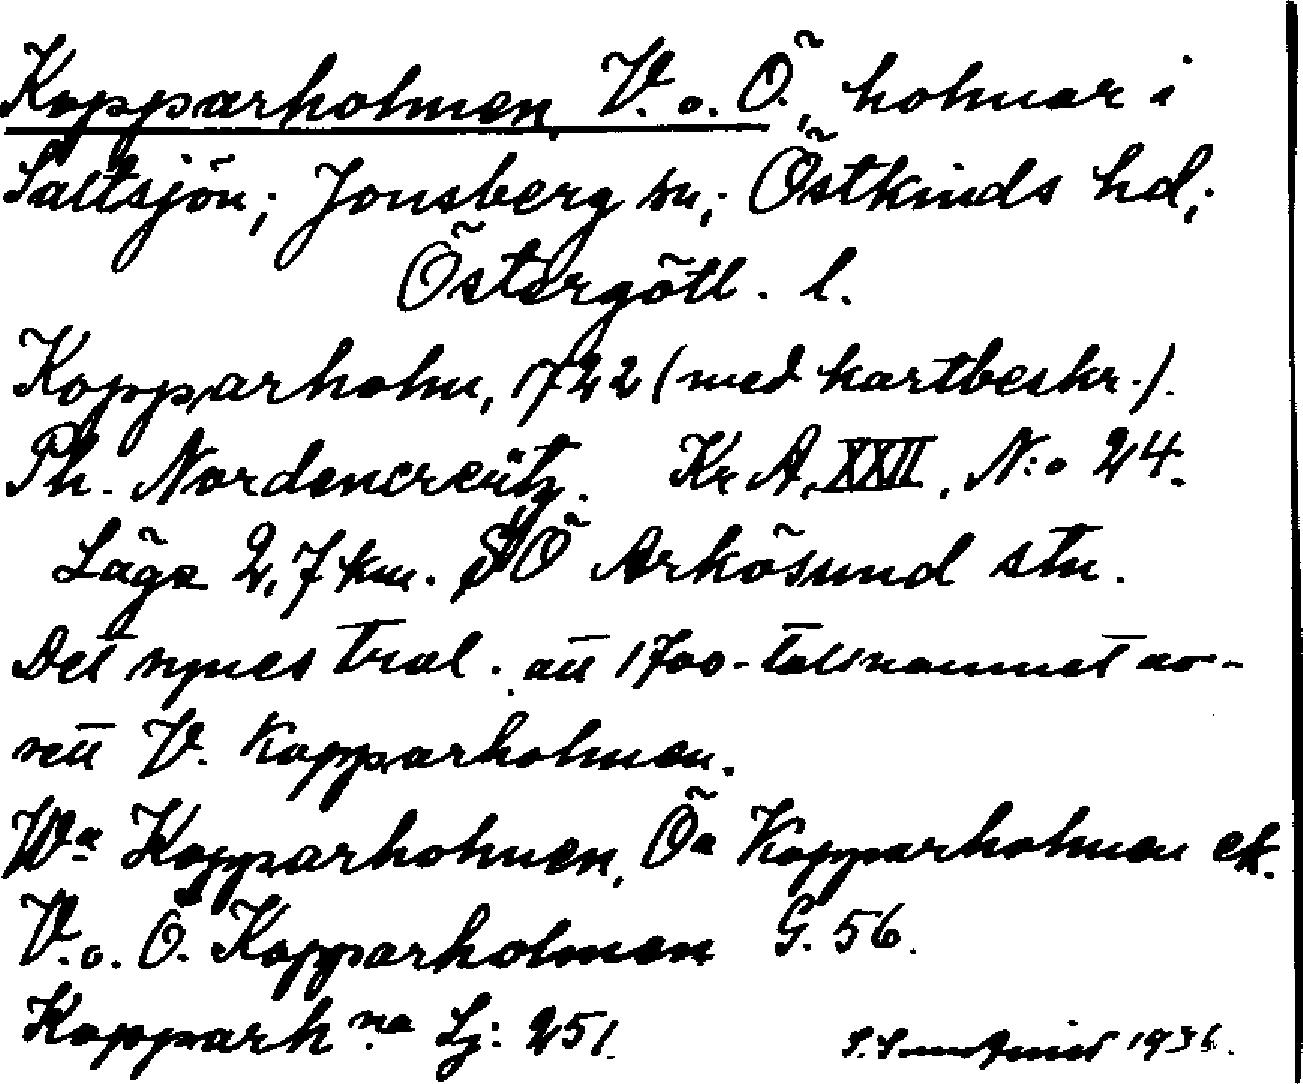 Kopparholmen, V. o. Ö., holmar i
Saltsjön; Jonsberg sn; Östkinds hd;
Östergötl. l.
Kopparholm, 1722 (med kartbeskr.).
Ph. Nordencreütz. Kr A, XXII, N:o 24.
Läge 2,7 km. SÖ Arkösund stn.
Det synes trol. att 1700-talsnamnet av-
sett V. Kopparholmen.
Wa Kopparholmen, Öa Kopparholmen ek.
V. o. Ö. Kopparholmen G. 56.
Kopparh na Lj: 251.
1936.